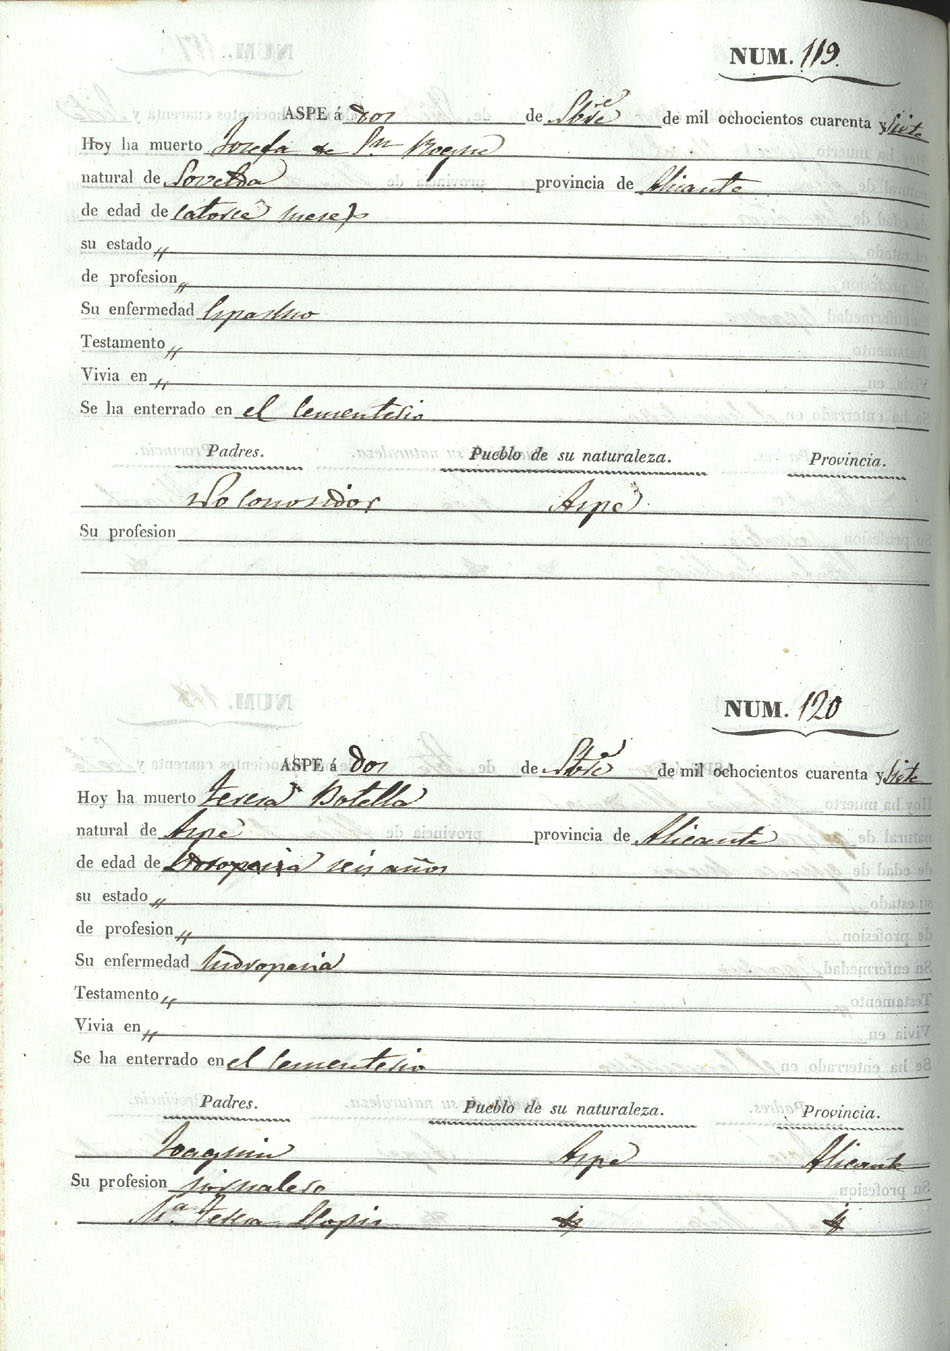 NUM. 119.
ASPE á dos de Sbre de mil ochocientos cuarenta y Siete
Hoy ha muerto Josefa de Sn Roque
natural de Novelda provincia de Alicante
de edad de catorce meses
su estado "
de profesion "
Su enfermedad Espasmo
Testamento "
Vivia en "
Se ha enterrado en el Cementerio
Padres. Pueblo de su naturaleza. Provincia.
No conosidos Aspe
Su profesion
NUM. 120
ASPE á dos de Sbre de mil ochocientos cuarenta y Siete
Hoy ha muerto Teresa Botella
natural de Aspe provincia de Alicante
de edad de seis años
su estado "
de profesion "
Su enfermedad hidropecia
Testamento "
Vivia en "
Se ha enterrado en el Cementerio
Padres. Pueblo de su naturaleza. Provincia.
Joaquin Aspe Alicante
Su profesion jornalero
Ma. Teresa Llopis